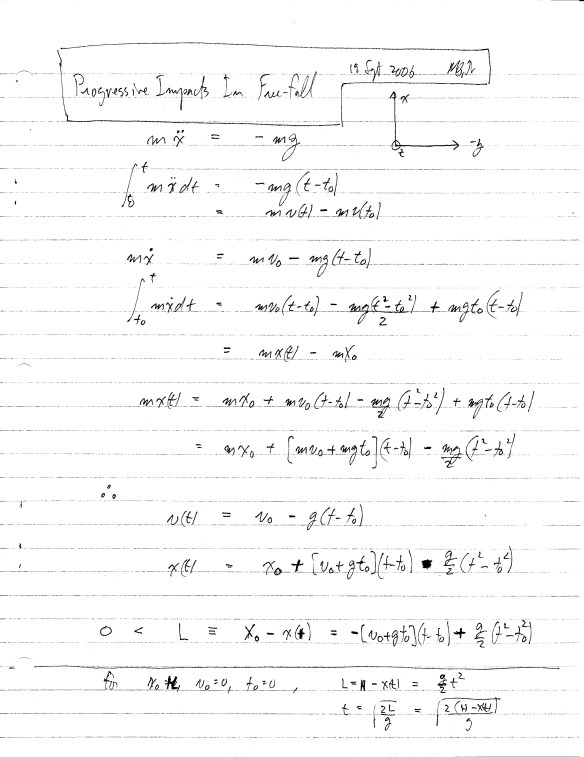 19 Sept 2006
Progressive Impacts In Free-fall
x
t
m ẍ = - mg
∫_{t₀}^{t} m ẍ dt = - mg (t-t₀)
= m v(t) - m v(t₀)
m ẋ = m v₀ - mg (t-t₀)
∫_{t₀}^{t} m ẋ dt = m v₀ (t-t₀) - mg(t²-t₀²)/2 + mg t₀ (t-t₀)
= m x(t) - m x₀
m x(t) = m x₀ + m v₀ (t-t₀) - mg/2 (t²-t₀²) + mg t₀ (t-t₀)
= m x₀ + [m v₀ + mg t₀](t-t₀) - mg/2 (t²-t₀²)
∴
v(t) = v₀ - g(t-t₀)
x(t) = x₀ + [v₀+gt₀](t-t₀) - g/2 (t²-t₀²)
0 < L ≡ x₀ - x(t) = -[v₀+gt₀](t-t₀) + g/2 (t²-t₀²)
for x₀=H, v₀=0, t₀=0, L = H - x(t) = g/2 t²
t = √(2L/g) = √(2(H-x(t))/g)